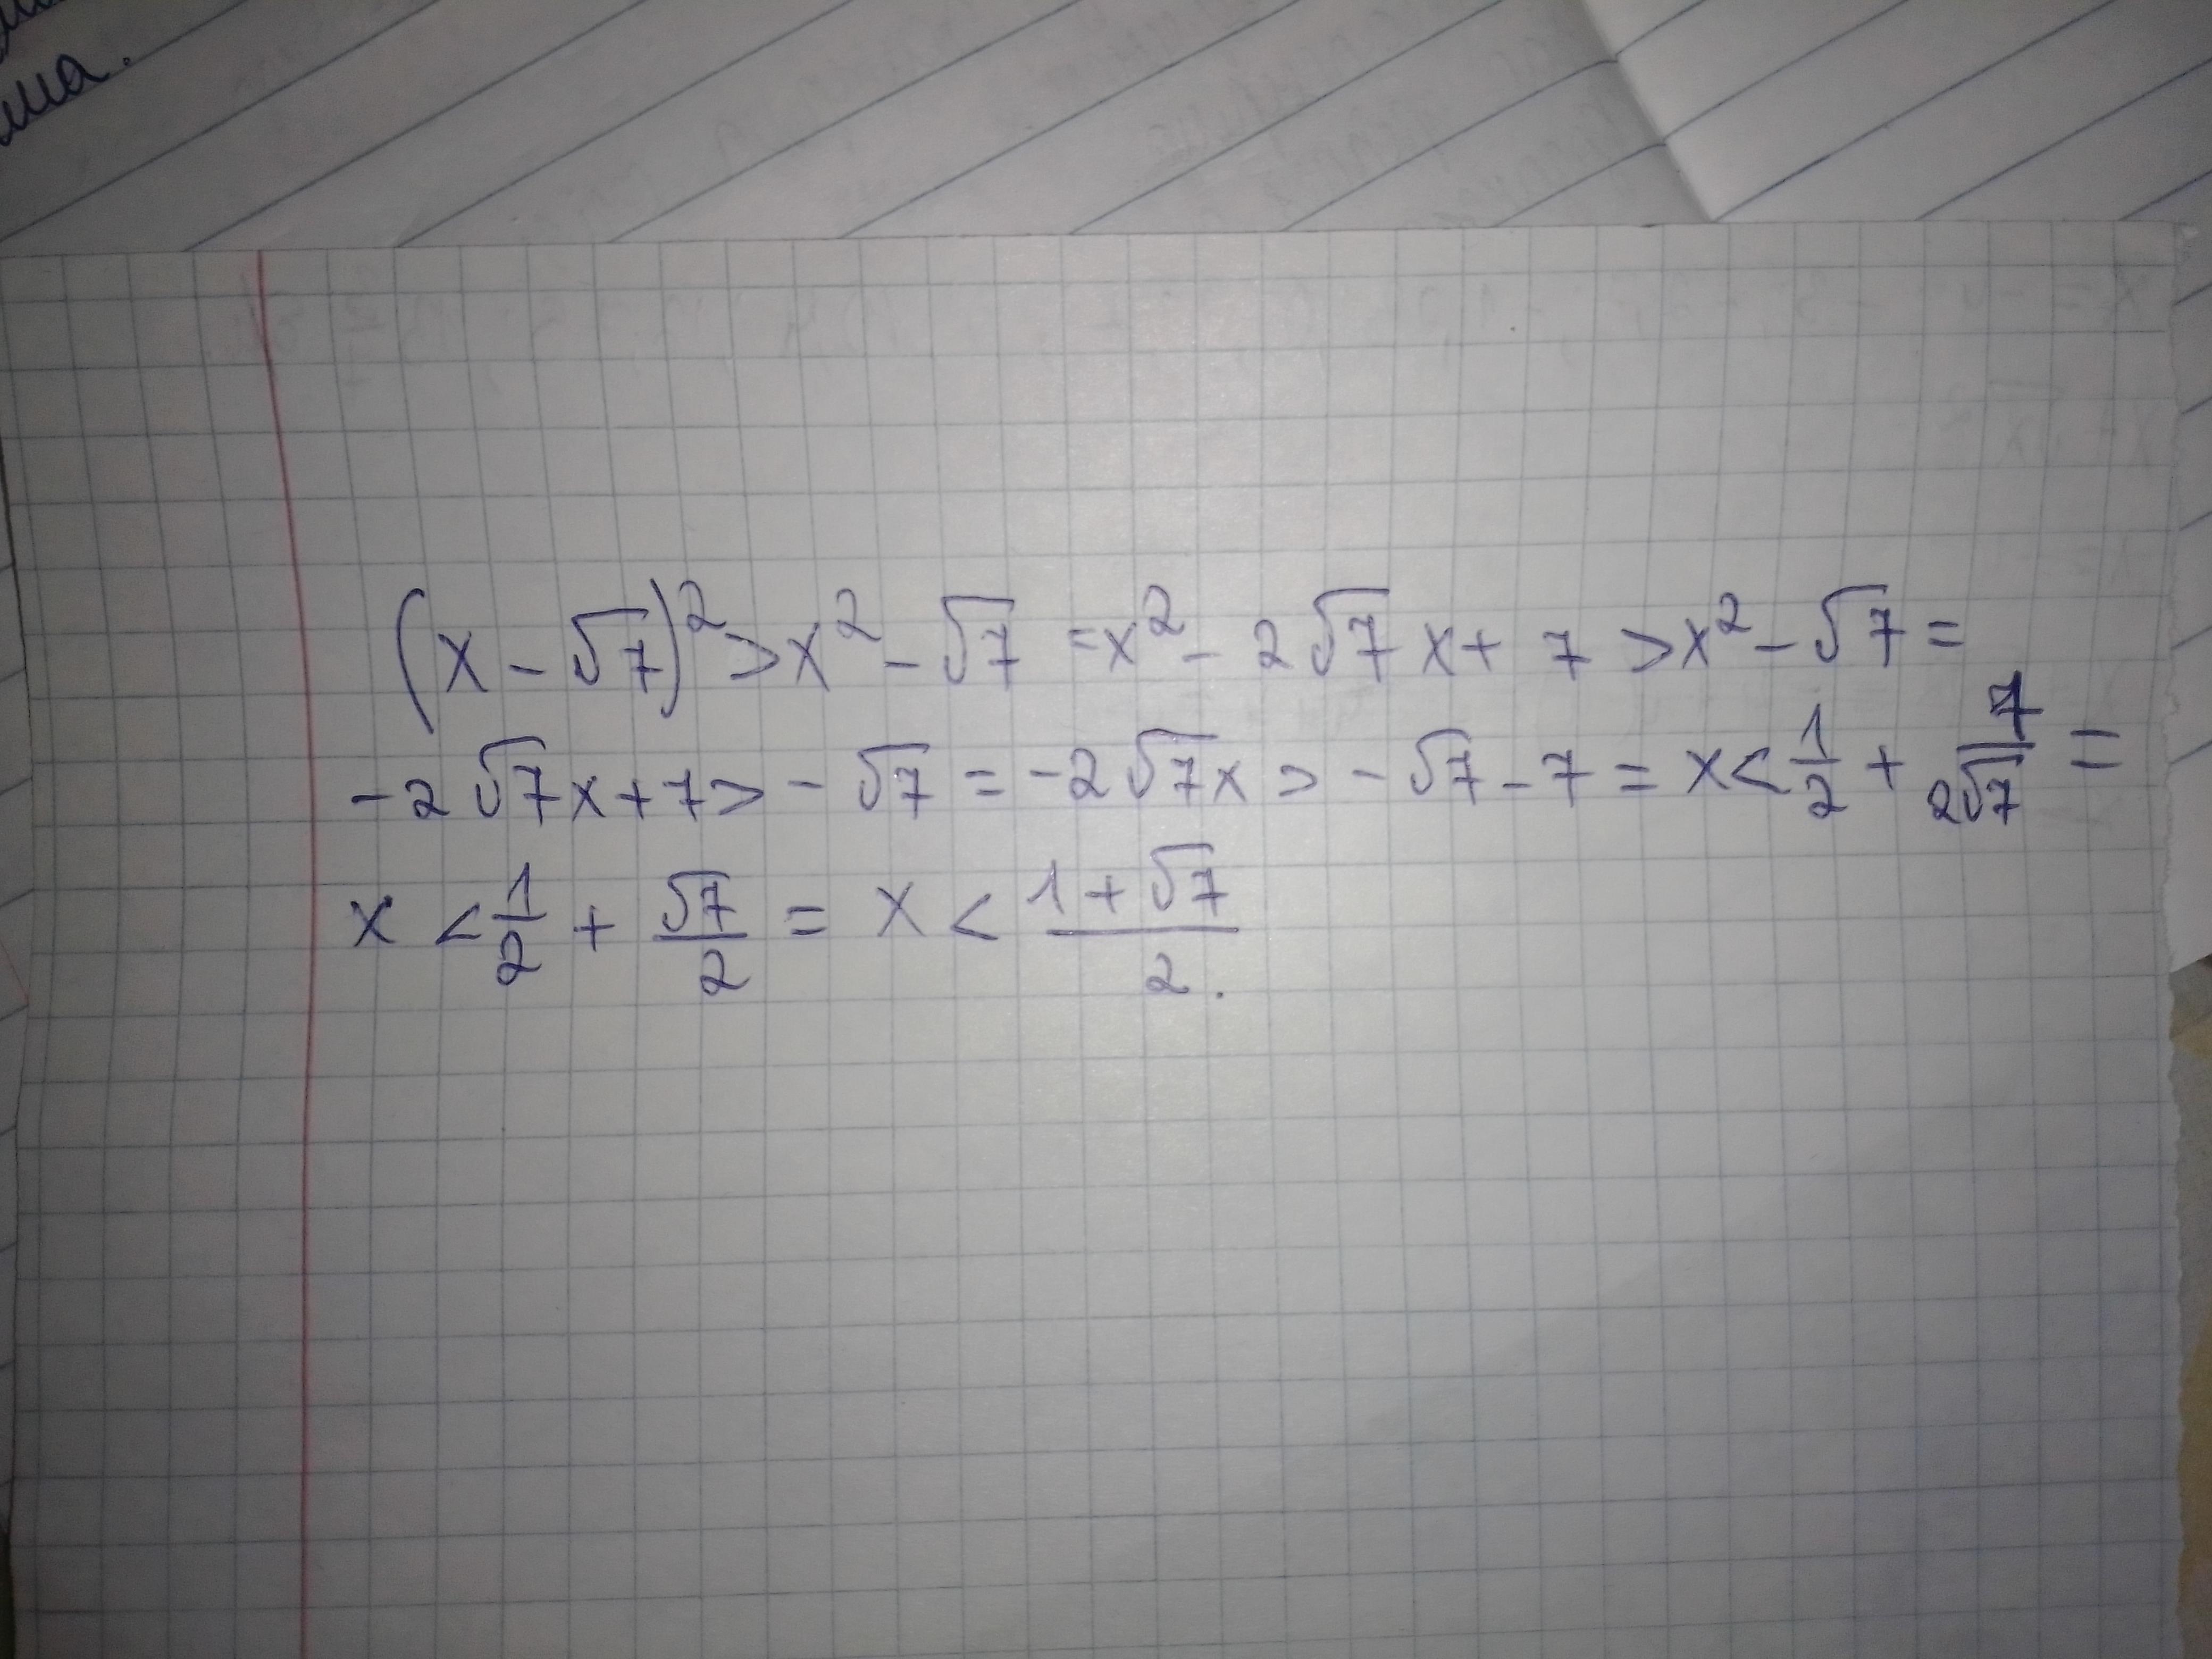 ма.
(x - √7)² > x² - √7 = x² - 2√7 x + 7 > x² - √7 =
- 2√7x + 7 > - √7 = - 2√7x > - √7 - 7 = x < 1/2 + 7/2√7 =
x < 1/2 + √7/2 = x < (1 + √7)/2.